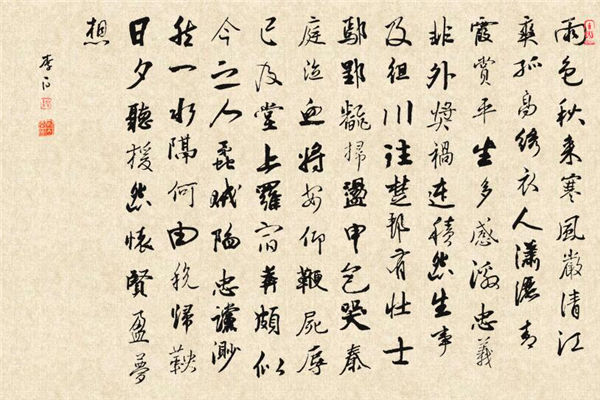 雨色秋来寒風嚴清江
爽孤高綉衣人瀟灑青
霞賞平生多感激忠義
非外奬禍連積怨生事
及徂川往楚邦有壮士
鄢郢翻掃盪申包哭秦
庭泣血將安仰鞭屍辱
已及堂上羅宿莽頗似
今之人蟊贼陷忠讜渺
然一水隔何由税歸鞅
日夕聽猨怨懷賢盈夢
想
李白